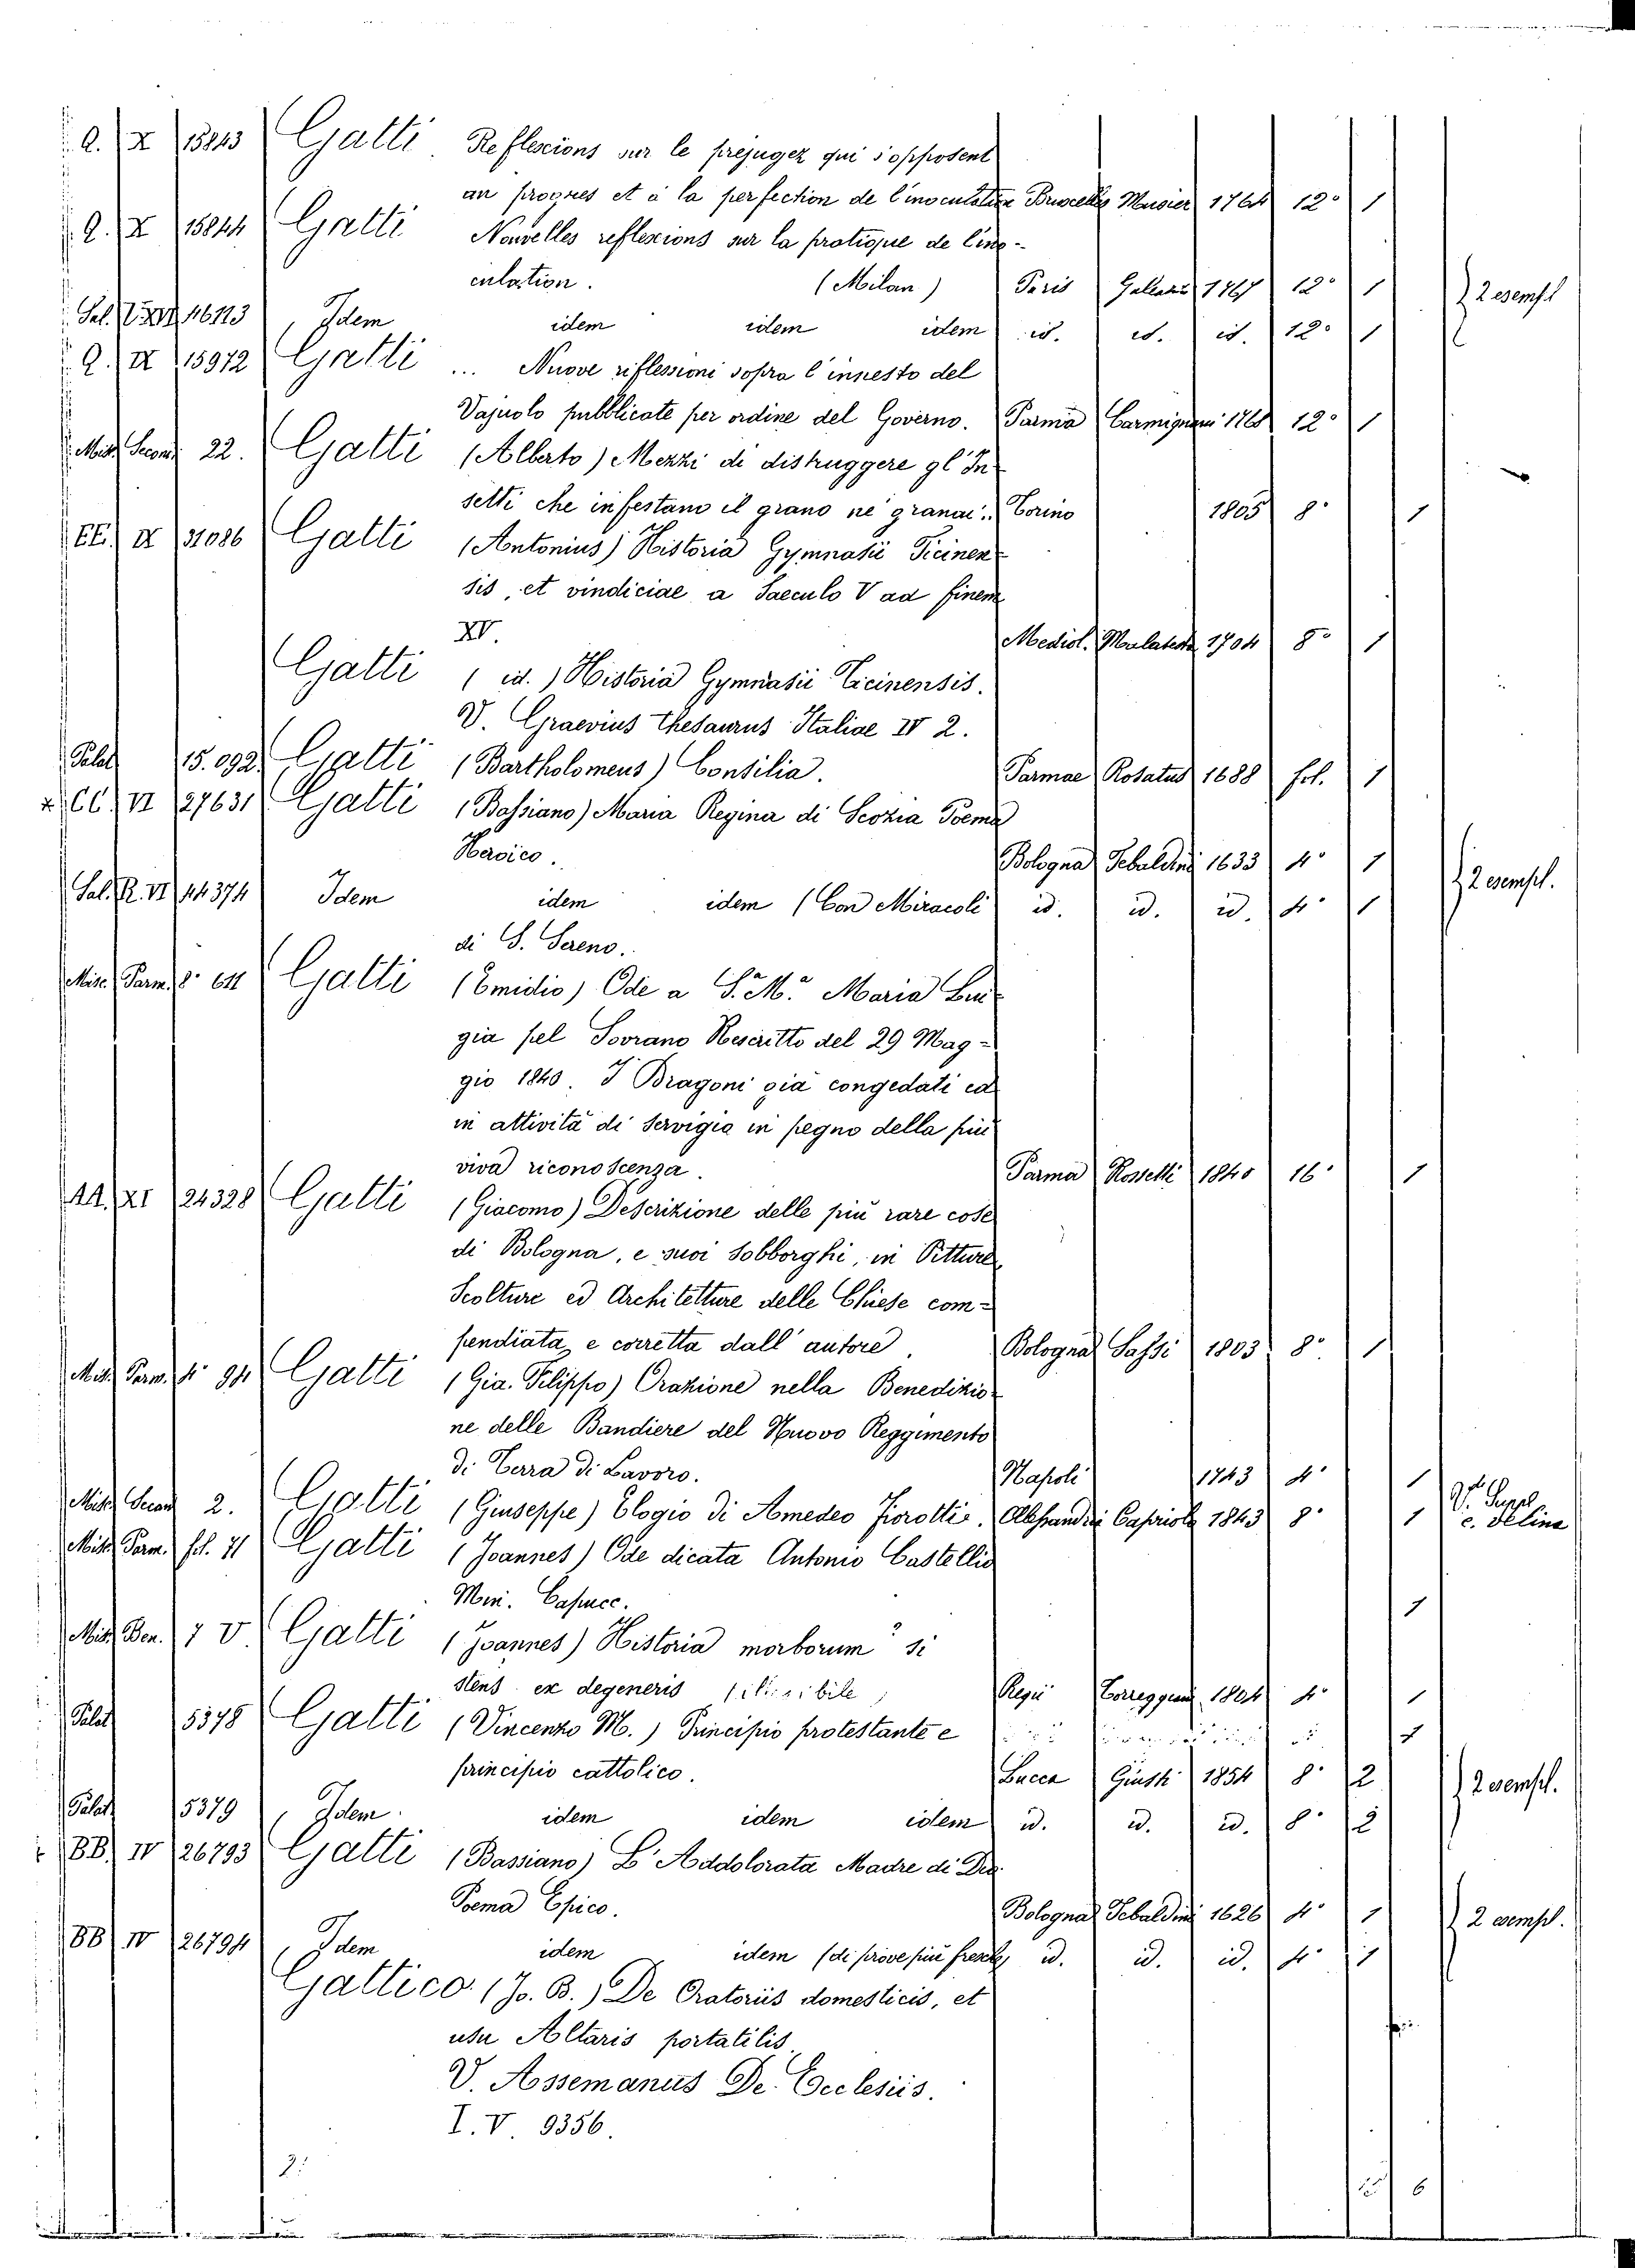 Q. X 15843 Gatti Reflexions sur le prejugez qui s'opposent
au progres et a la perfection de l'inoculation Bruxelles Musier 1764 12° 1
Q. X 15844 Gatti Nouvelles reflexions sur la pratique de l'ino-
culation. (Milan) Paris 1767 12° 1 2 esempl
Sal. 16113 Idem idem idem idem id. id. id. 12° 1
Q. IX 15972 Gatti ... Nuove riflessioni sopra l'innesto del
Vajuolo pubblicate per ordine del Governo. Parma Carmignani 1768 12° 1
22. Gatti (Alberto) Mezzi di distruggere gl'In
setti che infestano il grano ne' granai. Torino 1805 8° 1
EE. IX 31086 Gatti (Antonius) Historia Gymnasii Ticinen
sis, et vindiciae a Saeculo V ad finem
XV. Mediol. Malatesta 1704 8° 1
Gatti (id.) Historia Gymnasii Ticinensis.
V. Graevius Thesaurus Italiae IV 2.
Palat 15.092. Gatti (Bartholomeus) Consilia. Parmae Rosatus 1688 fol. 1
CC. VI 27631 Gatti (Bassiano) Maria Regina di Scozia Poema
Heroico. Bologna Tebaldini 1633 4° 1 2 esempl.
Sal. R. VI 14374 Idem idem idem (Con Miracoli id. id. id. 4° 1
di S. Sereno.
Misc. Parm. 8° 611 Gatti (Emidio) Ode a S. M.ª Maria Lui
gia pel Sovrano Rescritto del 29 Mag-
gio 1840. I Dragoni già congedati ed
in attività di servigio in pegno della più
viva riconoscenza. Parma Rossetti 1840 16° 1
AA. XI 24328 Gatti (Giacomo) Descrizione delle più rare cose
di Bologna, e suoi Sobborghi, in Pitture
Scolture ed Architetture delle Chiese com-
pendiata, e corretta dall'autore. Bologna Sassi 1803 8° 1
Misc. Parm. 4° 94 Gatti (Gia. Filippo) Orazione nella Benedizio
ne delle Bandiere del Nuovo Reggimento
di Terra di Lavoro. Napoli 1743 4° 1
2. Gatti (Giuseppe) Elogio di Amedeo Fiorotti. Alessandria Capriolo 1843 8° 1
Misc. Parm. fol. 71 Gatti (Joannes) Ode dicata Antonio Castellio
Min. Capucc. 1
Misc. Ben. 7 V Gatti (Joannes) Historia morborum si
stens ex degeneris Regii 4° 1
Palat 5378 Gatti (Vincenzo M.) Principio protestante e
principio cattolico. Lucca Giusti 1854 8° 2 2 esempl.
Palat 5379 Idem idem idem idem id. id. id. 8° 2
BB. IV 26793 Gatti (Bassiano) L'Addolorata Madre di Dio
Poema Epico. Bologna Tebaldini 1626 4° 1 2 esempl.
BB IV 26794 Idem idem idem (di prove più fresche) id. id. id. 4° 1
Gattico (Jo. B.) De Oratoriis domesticis, et
usu Altaris portatilis.
V. Assemanus De Ecclesiis.
I. V 9356.
6